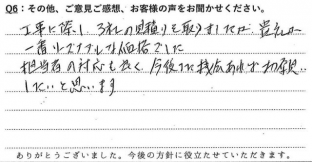 Q6：その他、ご意見ご感想、お客様の声をお聞かせください。
工事に際し、3社の見積りを取りましたが、貴社が
一番リーズナブルな価格でした
担当者の対応も良く、今後また機会あれば お願い
したいと思います
ありがとうございました。今後の方針に役立たせていただきます。